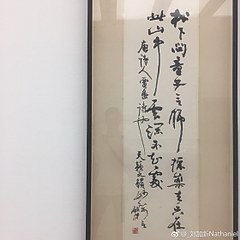 松下問童子言師採藥去只在
此山中雲深不知處
唐詩人賈島詩
Nathaniel